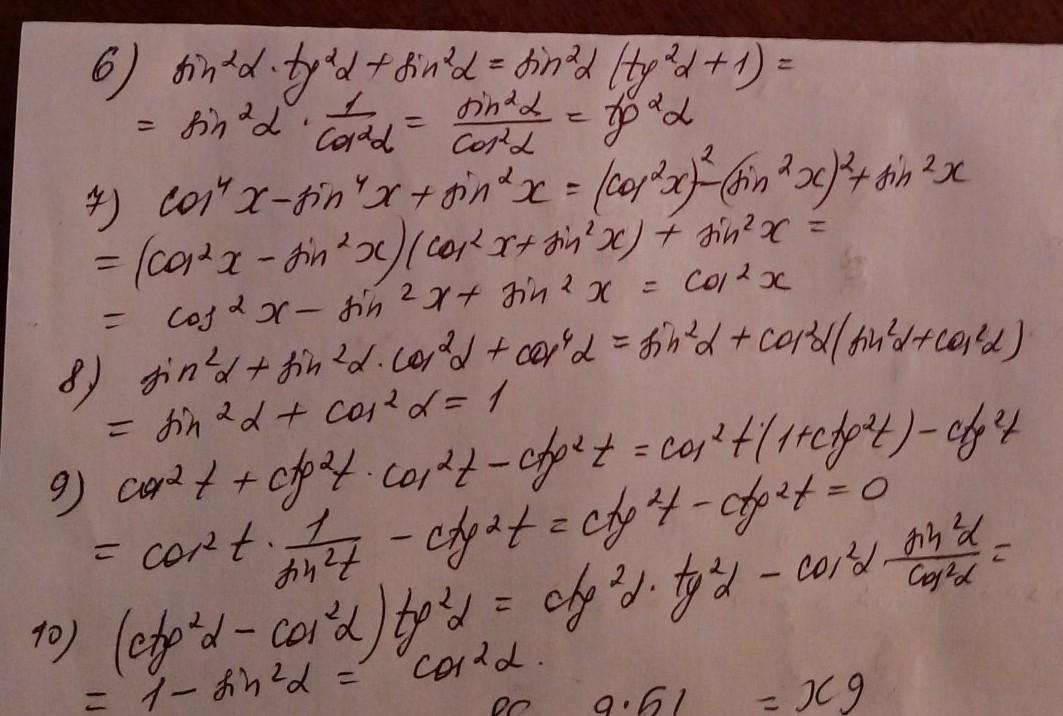 6) sin²α · tg²α + sin²α = sin²α (tg²α + 1) =
= sin²α · 1/cos²α = sin²α/cos²α = tg²α
7) cos⁴x - sin⁴x + sin²x = (cos²x)² - (sin²x)² + sin²x
= (cos²x - sin²x)(cos²x + sin²x) + sin²x =
= cos²x - sin²x + sin²x = cos²x
8) sin²α + sin²α · cos²α + cos⁴α = sin²α + cos²α(sin²α + cos²α)
= sin²α + cos²α = 1
9) cos²t + ctg²t · cos²t - ctg²t = cos²t(1 + ctg²t) - ctg²t
= cos²t · 1/sin²t - ctg²t = ctg²t - ctg²t = 0
10) (ctg²α - cos²α) tg²α = ctg²α · tg²α - cos²α · sin²α/cos²α =
= 1 - sin²α = cos²α.
= x9